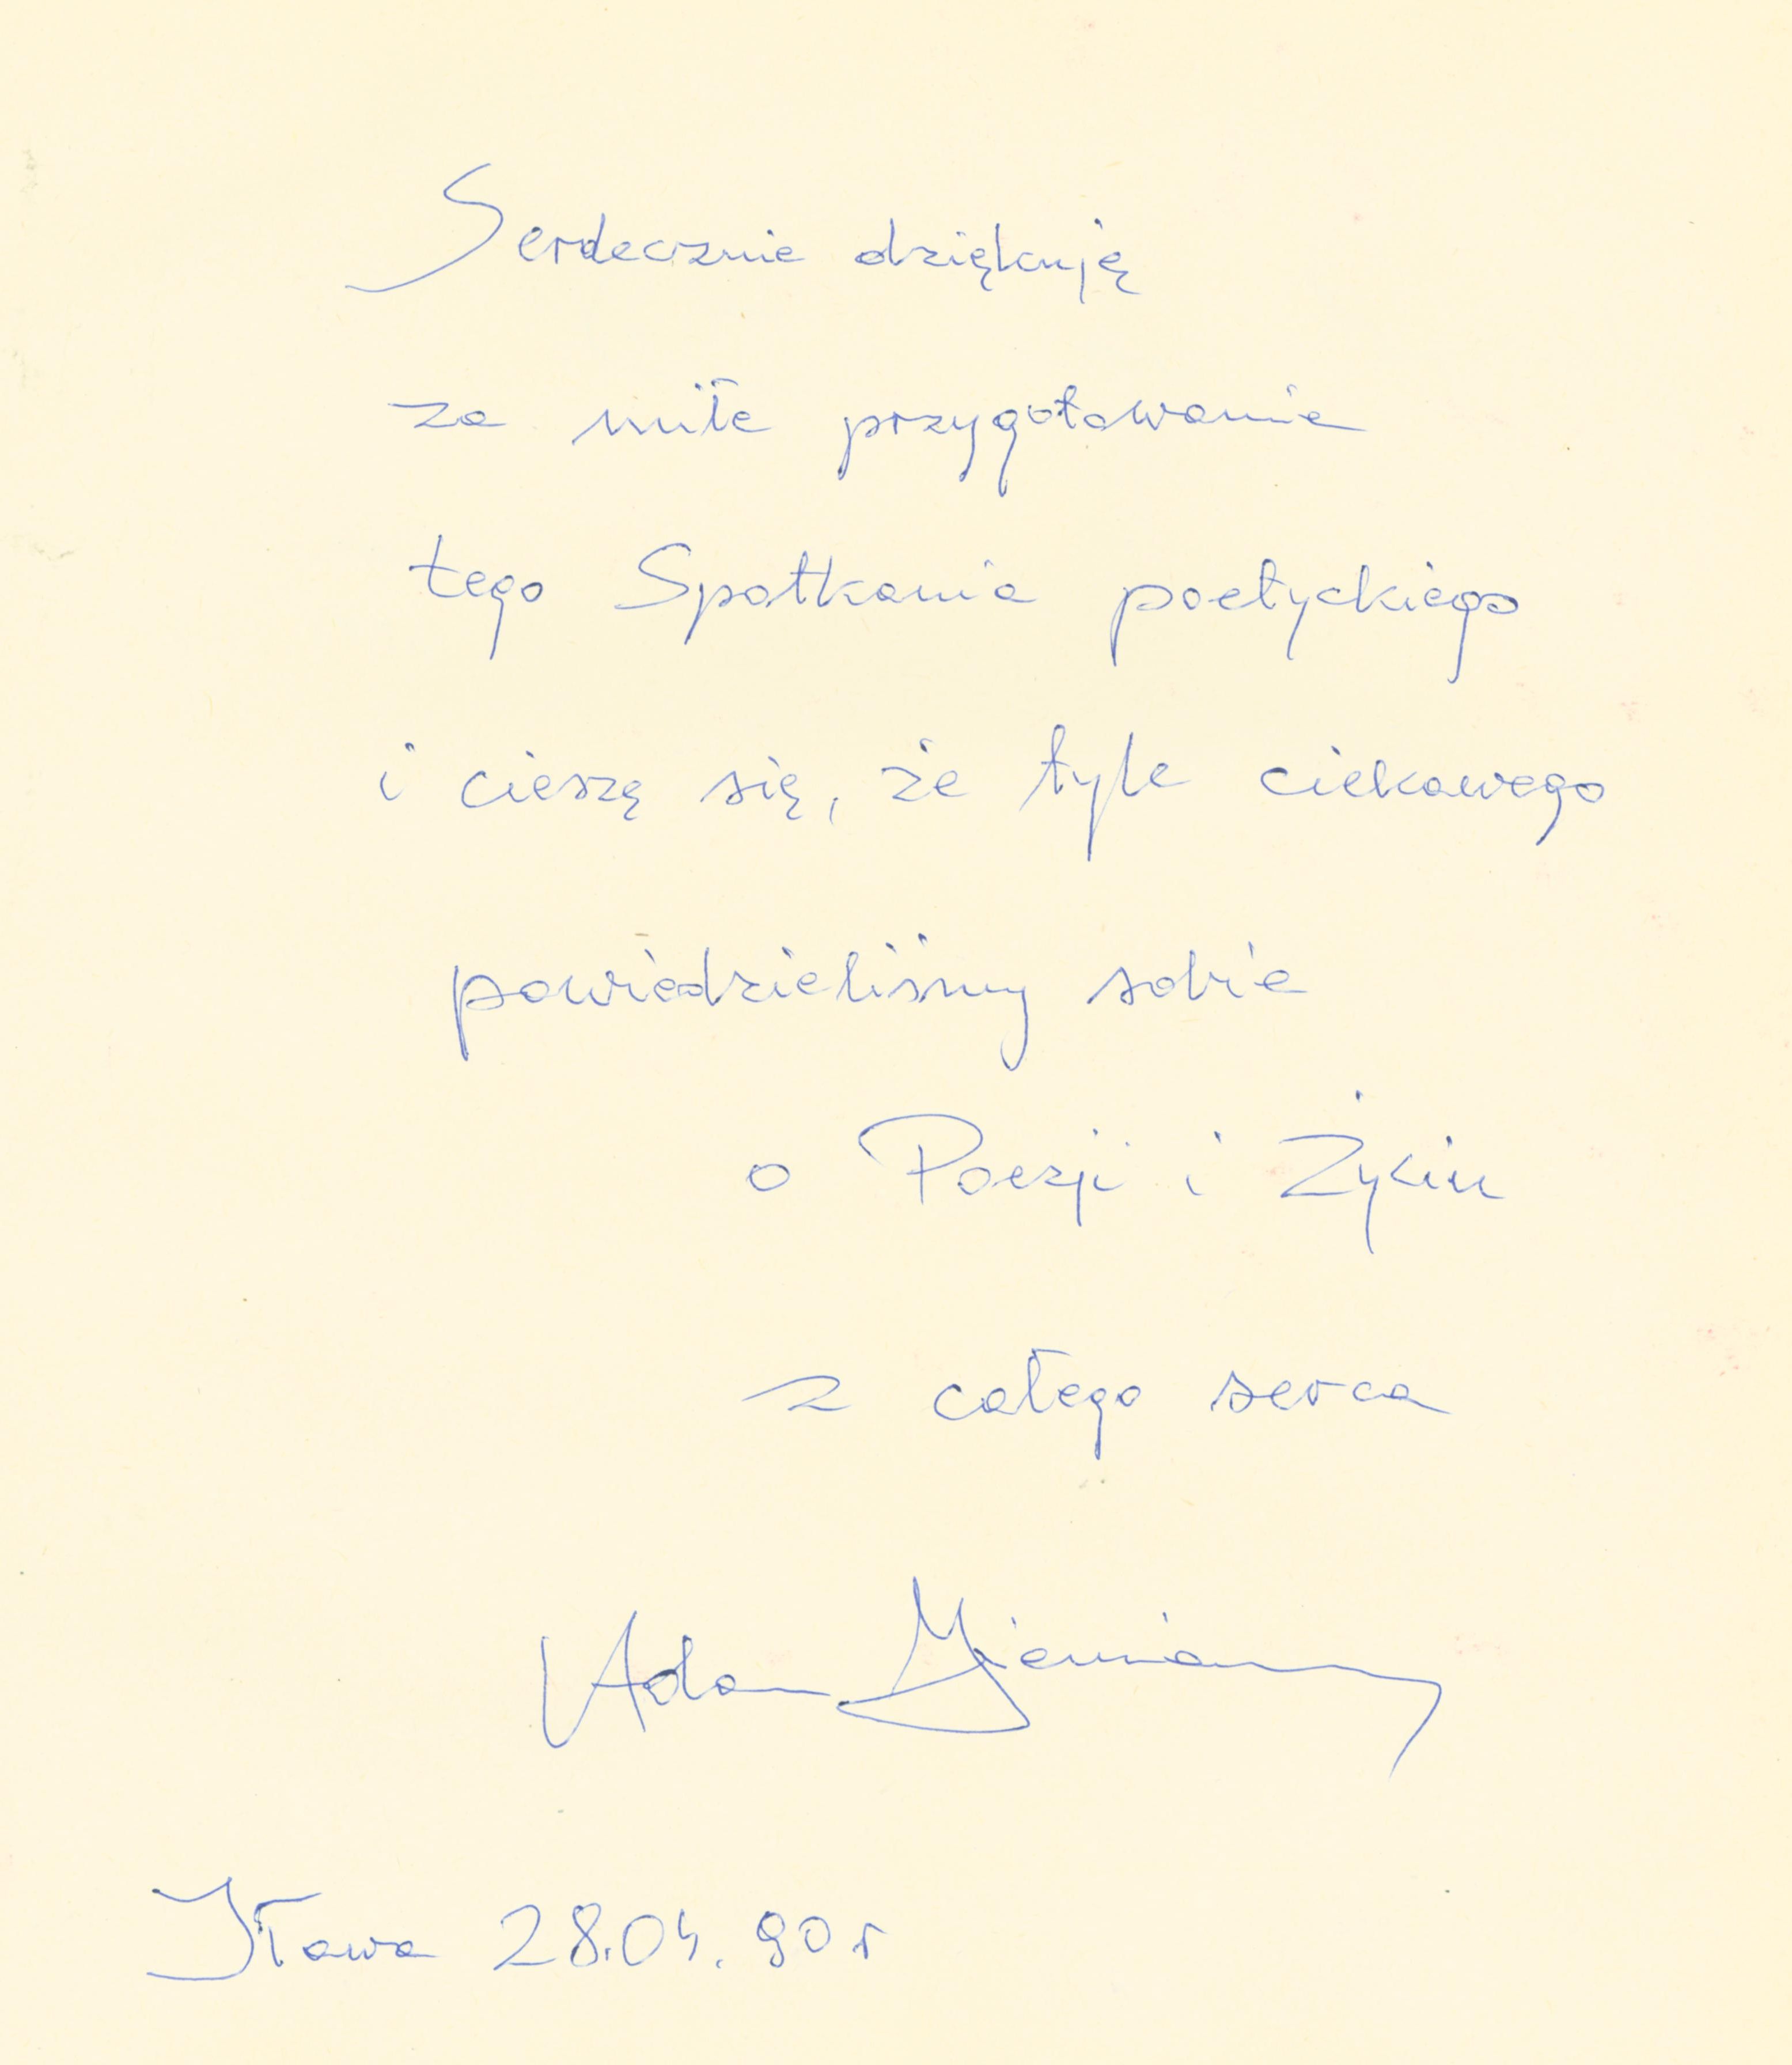 Serdecznie dziękuję
za miłe przygotowanie
tego Spotkania poetyckiego
i cieszę się, że tyle ciekawego
powiedzieliśmy sobie
o Poezji i Życiu
z całego serca
Adam Ziemianin
Iława 28.04.90 r